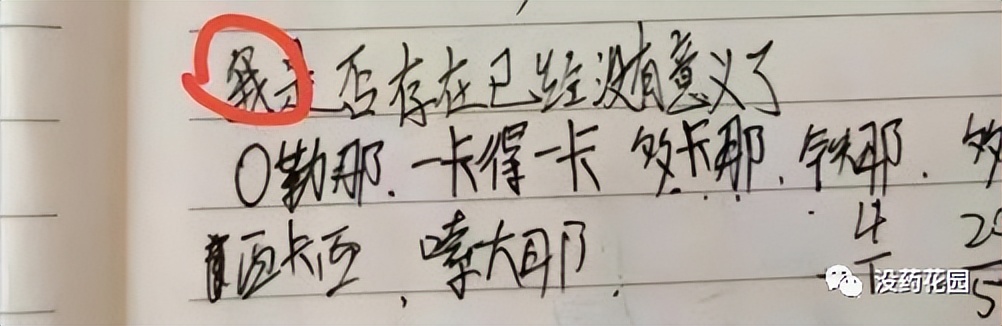 我是否存在已经没有意义了
O勒那.一卡得一卡 效卡那.铁那.
西卡西,嗦大那.
4 2
5
没药花园